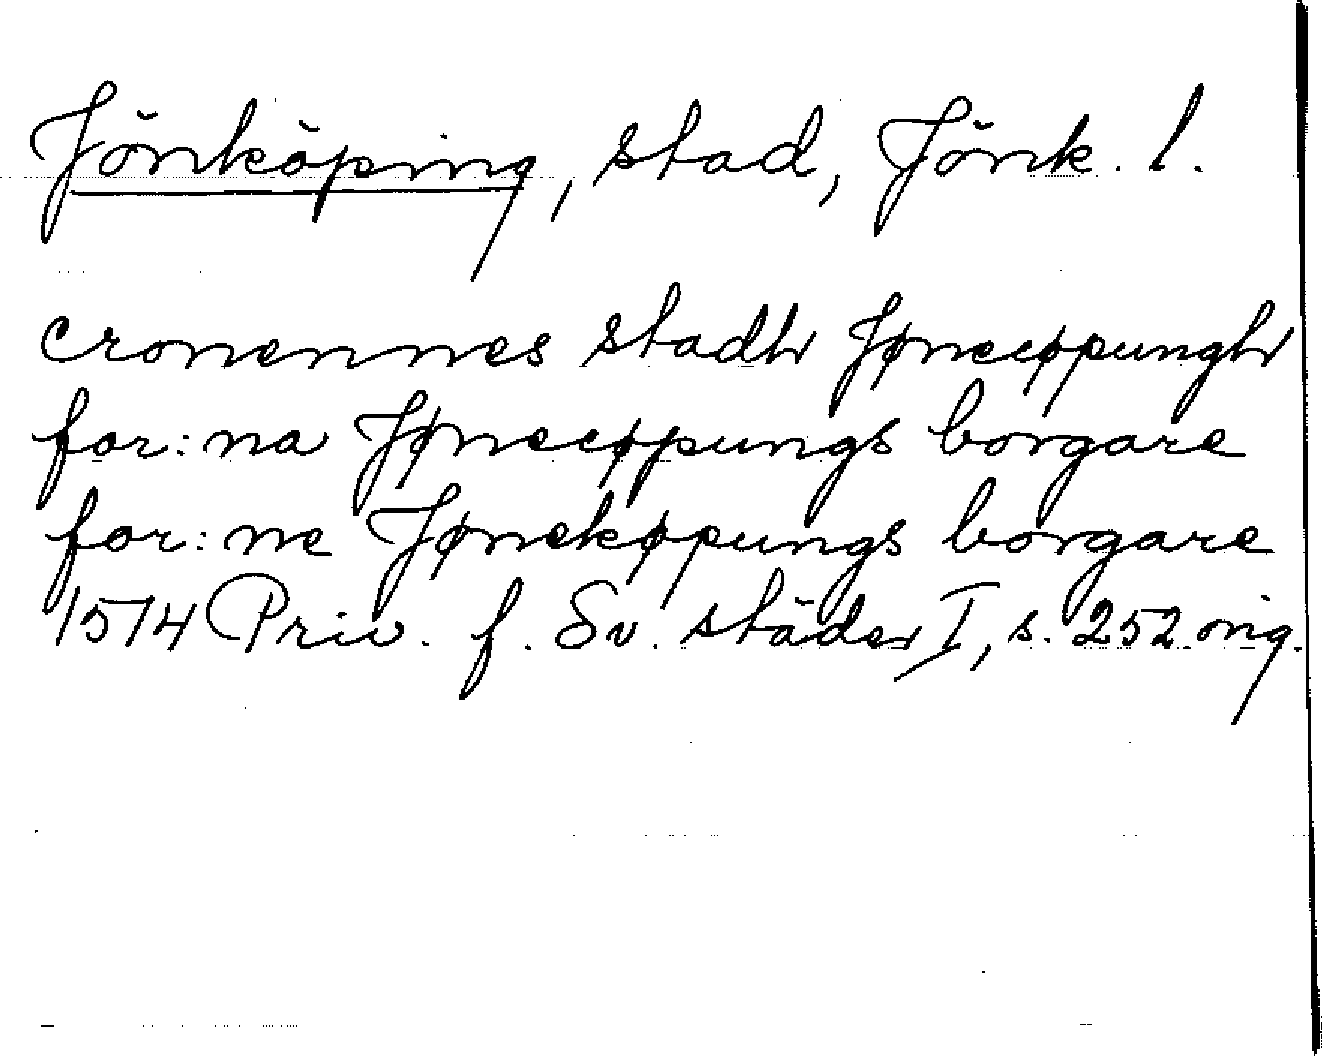 Jönköping, stad, Jönk. l.
cronennes stadh Jønecøpungh
for:na Jønecøpungs borgare
for:ne Jønekøpungs borgare
1514 Priv. f. Sv. städer I, s. 252. orig.